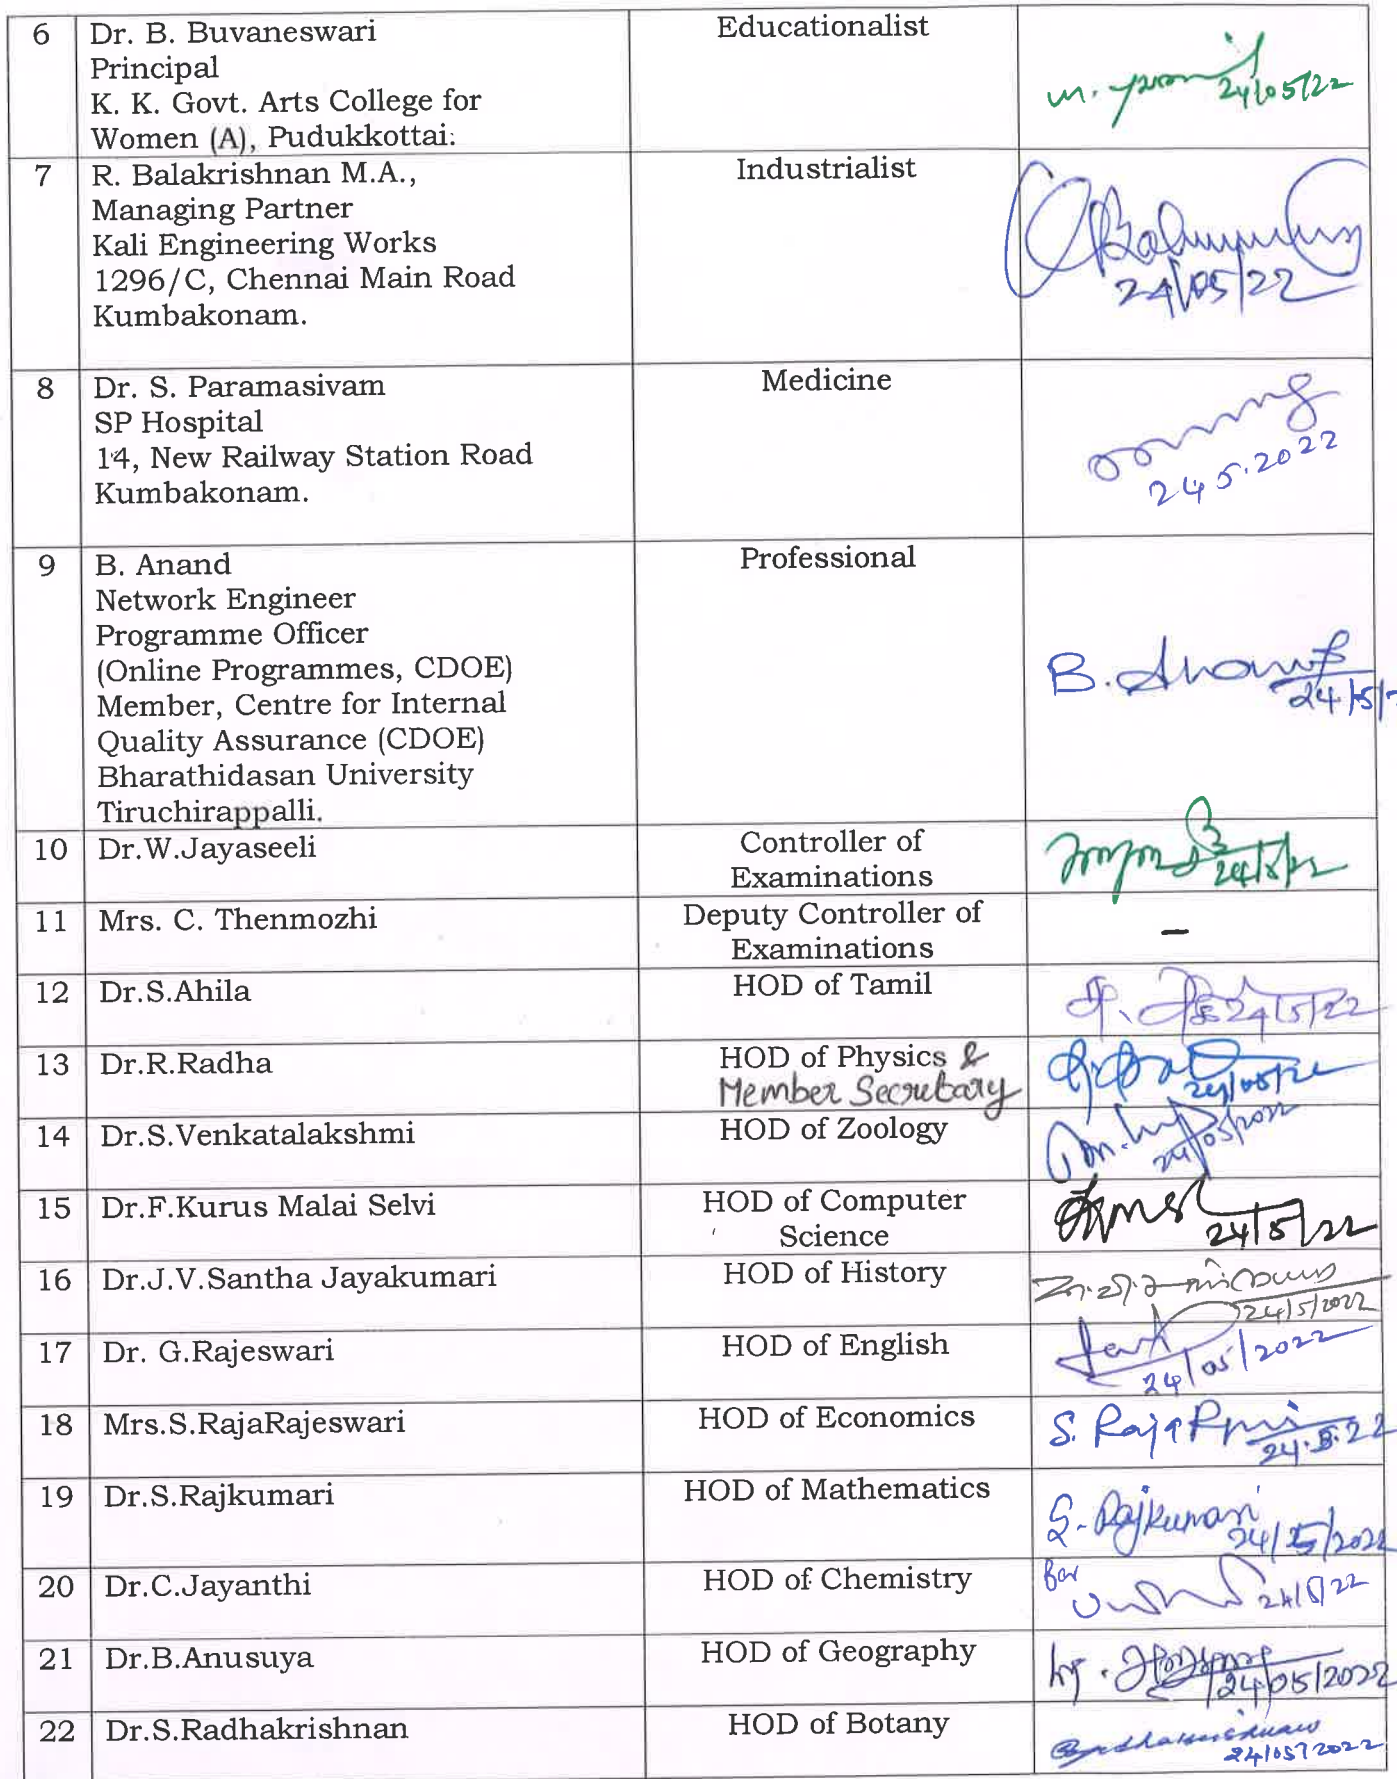 6 Dr. B. Buvaneswari Educationalist
Principal
K. K. Govt. Arts College for 24/05/22
Women (A), Pudukkottai.
7 R. Balakrishnan M.A., Industrialist
Managing Partner
Kali Engineering Works
1296/C, Chennai Main Road 24/05/22
Kumbakonam.
8 Dr. S. Paramasivam Medicine
SP Hospital
14, New Railway Station Road
Kumbakonam. 24 5.2022
9 B. Anand Professional
Network Engineer
Programme Officer
(Online Programmes, CDOE) B. Anand
Member, Centre for Internal 24/5/
Quality Assurance (CDOE)
Bharathidasan University
Tiruchirappalli.
10 Dr.W.Jayaseeli Controller of
Examinations 24/5/22
11 Mrs. C. Thenmozhi Deputy Controller of
Examinations –
12 Dr.S.Ahila HOD of Tamil 24/5/22
13 Dr.R.Radha HOD of Physics &
Member Secretary 24/05/22
14 Dr.S.Venkatalakshmi HOD of Zoology 24/05/2022
15 Dr.F.Kurus Malai Selvi HOD of Computer
Science 24/5/22
16 Dr.J.V.Santha Jayakumari HOD of History
24/5/2022
17 Dr. G.Rajeswari HOD of English
24/05/2022
18 Mrs.S.RajaRajeswari HOD of Economics S. Raja
24.5.22
19 Dr.S.Rajkumari HOD of Mathematics S. Rajkumari
24/5/2022
20 Dr.C.Jayanthi HOD of Chemistry for
24/5/22
21 Dr.B.Anusuya HOD of Geography
24/05/2022
22 Dr.S.Radhakrishnan HOD of Botany Radhakrishnan
24/05/2022